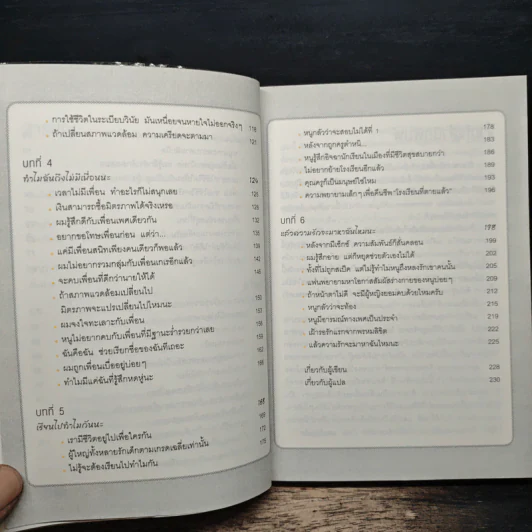 . การใช้ชีวิตในระเบียบวินัย มันเหนื่อยจนหายใจไม่ออกจริงๆ 118
. ถ้าเปลี่ยนสภาพแวดล้อม ความเครียดจะตามมา 121
บทที่ 4
ทำไมฉันถึงไม่มีเพื่อนนะ 124
. เวลาไม่มีเพื่อน ทำอะไรก็ไม่สนุกเลย 126
. เงินสามารถซื้อมิตรภาพได้จริงเหรอ
. ผมรู้สึกดีกับเพื่อนเพศเดียวกัน
. อยากขอโทษเพื่อนก่อน แต่ว่า...
. แค่มีเพื่อนสนิทเพียงคนเดียวก็พอแล้ว
. ผมไม่อยากรวมกลุ่มกับเพื่อนเกเรอีกแล้ว
. จะคบเพื่อนที่ดีกว่านายให้ได้
. ถ้าสภาพแวดล้อมเปลี่ยนไป
มิตรภาพจะแปรเปลี่ยนไปไหมนะ
. ผมจงใจทะเลาะกับเพื่อน
. หนูไม่อยากคบกับเพื่อนที่มีฐานะร่ำรวยกว่าเลย
. ฉันคือฉัน ช่วยเรียกชื่อของฉันทีเถอะ
. ผมถูกเพื่อนเบี่ยงอยู่บ่อยๆ
. ทำไมมีแค่ฉันที่รู้สึกหดหู่นะ
บทที่ 5
เรียนไปทำไมกันนะ
. เรามีชีวิตอยู่ไปเพื่อใครกัน
. ผู้ใหญ่ทั้งหลายรักเด็กตามเกรดเฉลี่ยเท่านั้น
. ไม่รู้จะต้องเรียนไปทำไมกัน
. หนูกลัวว่าจะสอบไม่ได้ที่ 1 178
. หลังจากถูกครูตำหนิ... 180
. หนูรู้สึกอิจฉานักเรียนในเมืองที่มีชีวิตสุขสบายกว่า
. ไม่อยากย้ายโรงเรียนอีกแล้ว
. คุณครูก็เป็นมนุษย์ใช่ไหม
. ความพยายามเด็กๆ เพื่อคืนชีพ "โรงเรียนที่ตายแล้ว" 196
บทที่ 6
. หลังจากมีเซ็กซ์ ความสัมพันธ์ก็สั่นคลอน 199
. ผมรู้สึกอาย แต่ก็หยุดช่วยตัวเองไม่ได้ 203
. ทั้งที่ไม่ถูกสเป็ค แต่ไม่รู้ทำไมหนูถึงหลงรักเขาคนนั้น 205
. แฟนพยายามหาโอกาสสัมผัสร่างกายของหนูบ่อยๆ 207
. ถ้าหน้าตาไม่ดี จะมีผู้หญิงยอมคบด้วยไหมครับ 212
. หนูกลัวว่าจะท้อง 215
. หนูมีอารมณ์ทางเพศเป็นประจำ 219
. เฝ้ารอรักแรกจากพรหมลิขิต 222
. แล้วความรักจะมาหาฉันไหมนะ 225
เกี่ยวกับผู้เขียน 228
เกี่ยวกับผู้แปล 230